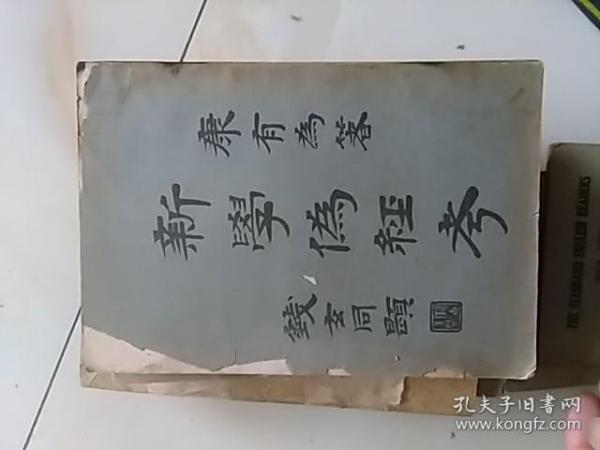 康有為箸
新學偽經考
錢玄同題
THE STANDARD ENGLISH READERS
孔夫子旧书网
www.kongfz.com